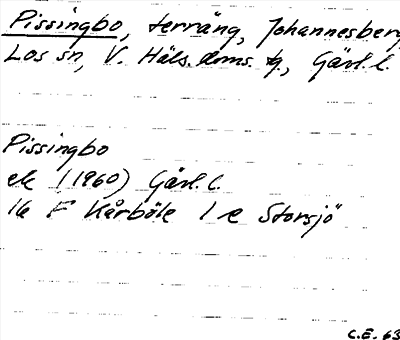 Pissingbo, terräng, Johannesberg,
Los sn, V. Häls. doms. tg, Gävl. l.
Pissingbo
ek (1960) Gävl. l.
16 F Kårböle 1 e Storsjö
C.E. 63